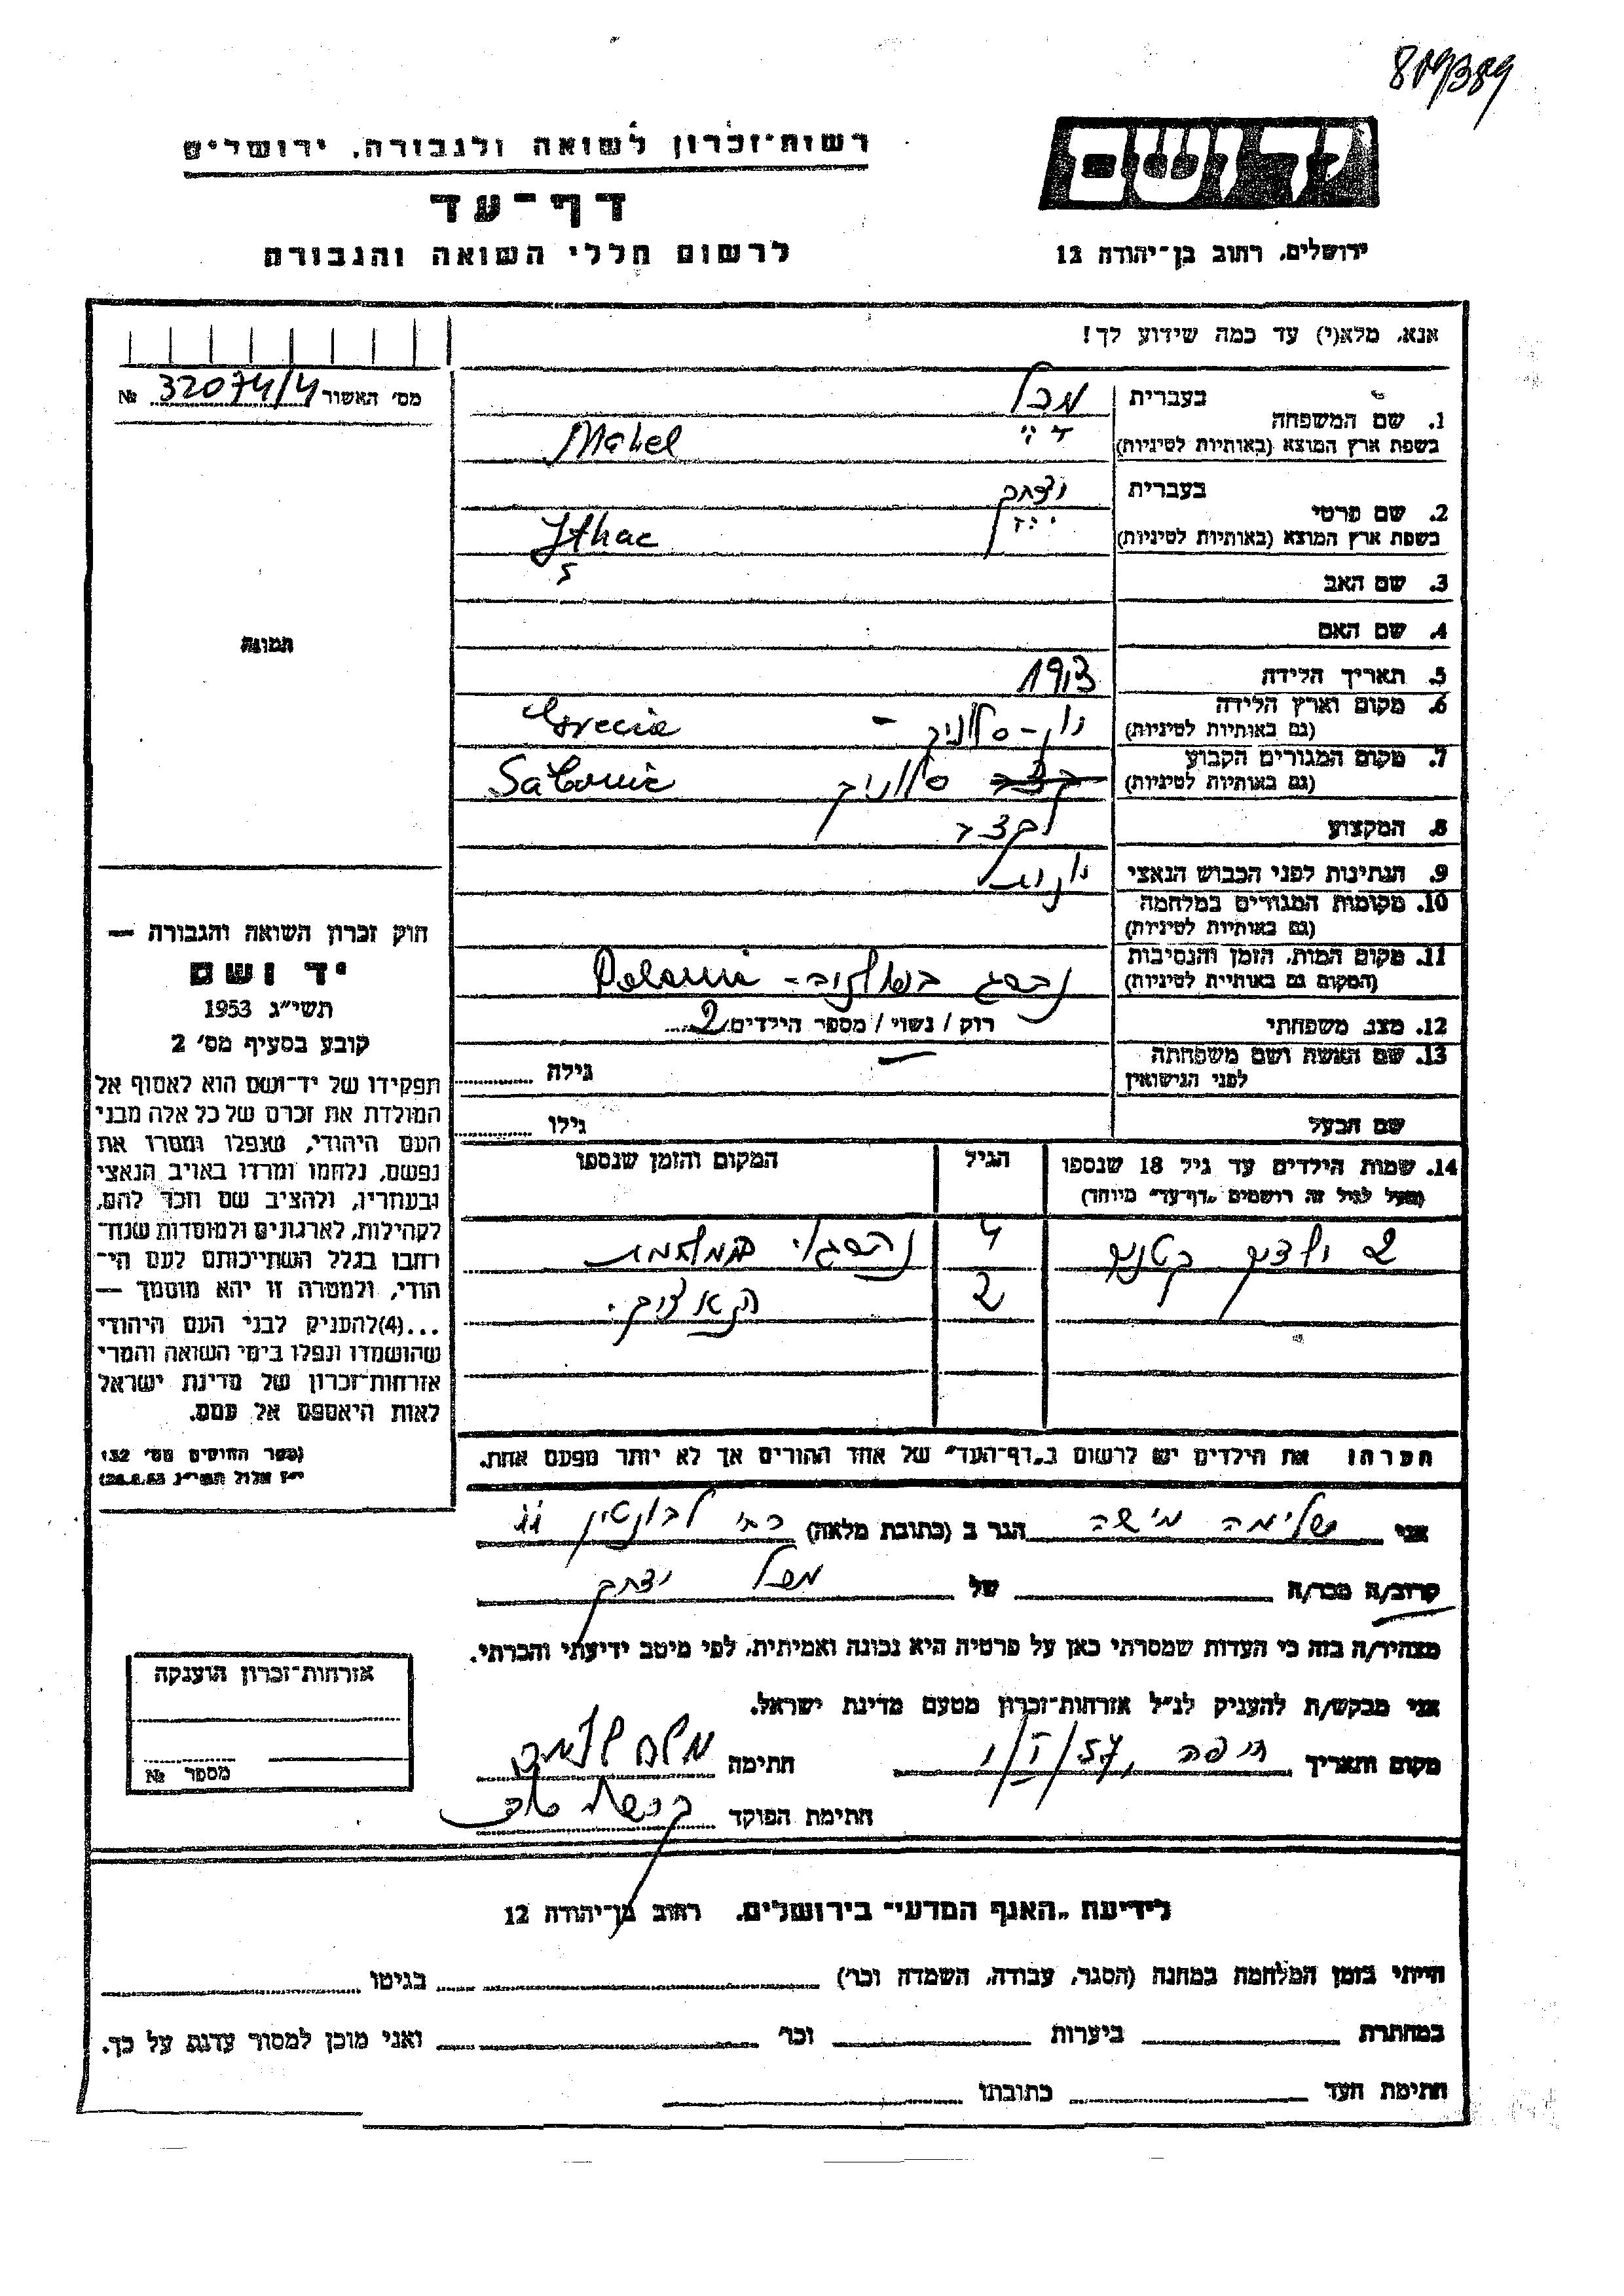 809389
יד ושם
רשות־זכרון לשואה ולגבורה, ירושלים
דף־עד
לרשום חללי השואה והגבורה
ירושלים, רחוב בן־יהודה 12
אנא, מלא(י) עד כמה שידוע לך!
מס׳ האשור 32074/4 №
תמונה
1. שם המשפחה
בעברית
בשפת ארץ המוצא (באותיות לטיניות) Mahel
2. שם פרטי
בעברית יצחק
בשפת ארץ המוצא (באותיות לטיניות) Ithac
s
3. שם האב
4. שם האם
5. תאריך הלידה 1913
6. מקום וארץ הלידה יון - סלוניק - Grecia
(גם באותיות לטיניות)
7. מקום המגורים הקבוע סלוניק Salonic
(גם באותיות לטיניות)
8. המקצוע קצב
9. הנתינות לפני הכבוש הנאצי יונית
10. מקומות המגורים במלחמה
(גם באותיות לטיניות)
11. מקום המות, הזמן והנסיבות נהרג
(המקום גם באותיות לטיניות)
12. מצב משפחתי רוק / נשוי / מספר הילדים 2
13. שם האשה ושם משפחתה
לפני הנישואין גילה
שם הבעל גילו
14. שמות הילדים עד גיל 18 שנספו הגיל המקום והזמן שנספו
(מעל לגיל זה רושמים „דף־עד״ מיוחד)
2 ילדים קטנים 4 נהרגו במלחמת
2 הנאצים.
הערה: את הילדים יש לרשום ב„דף־העד״ של אחד ההורים אך לא יותר מפעם אחת.
חוק זכרון השואה והגבורה —
יד ושם
תשי״ג 1953
קובע בסעיף מס׳ 2
תפקידו של יד־ושם הוא לאסוף אל
המולדת את זכרם של כל אלה מבני
העם היהודי, שנפלו ומסרו את
נפשם, נלחמו ומרדו באויב הנאצי
ובעוזריו, ולהציב שם וזכר להם,
לקהילות, לארגונים ולמוסדות שנח־
רבו בגלל השתייכותם לעם הי־
הודי, ולמטרה זו יהא מוסמך —
...(4)להעניק לבני העם היהודי
שהושמדו ונפלו בימי השואה והמרי
אזרחות־זכרון של מדינת ישראל
לאות היאספם אל עמם.
(ספר החוקים מס׳ 132
י״ז אלול תשי״ג 28.8.53)
אני הגר ב (כתובת מלאה)
קרוב/ה מכר/ה של יצחק
מצהיר/ה בזה כי העדות שמסרתי כאן על פרטיה היא נכונה ואמיתית, לפי מיטב ידיעתי והכרתי.
אני מבקש/ת להעניק לנ״ל אזרחות־זכרון מטעם מדינת ישראל.
מקום ותאריך חיפה, 1/I/57 חתימה
חתימת הפוקד
אזרחות־זכרון הוענקה
מספר №
לידיעת „האגף המדעי״ בירושלים, רחוב בן־יהודה 12
הייתי בזמן המלחמה במחנה (הסגר, עבודה, השמדה וכו׳) בגיטו
במחתרת ביערות וכו׳ ואני מוכן למסור עדות על כך.
חתימת העד כתובתו